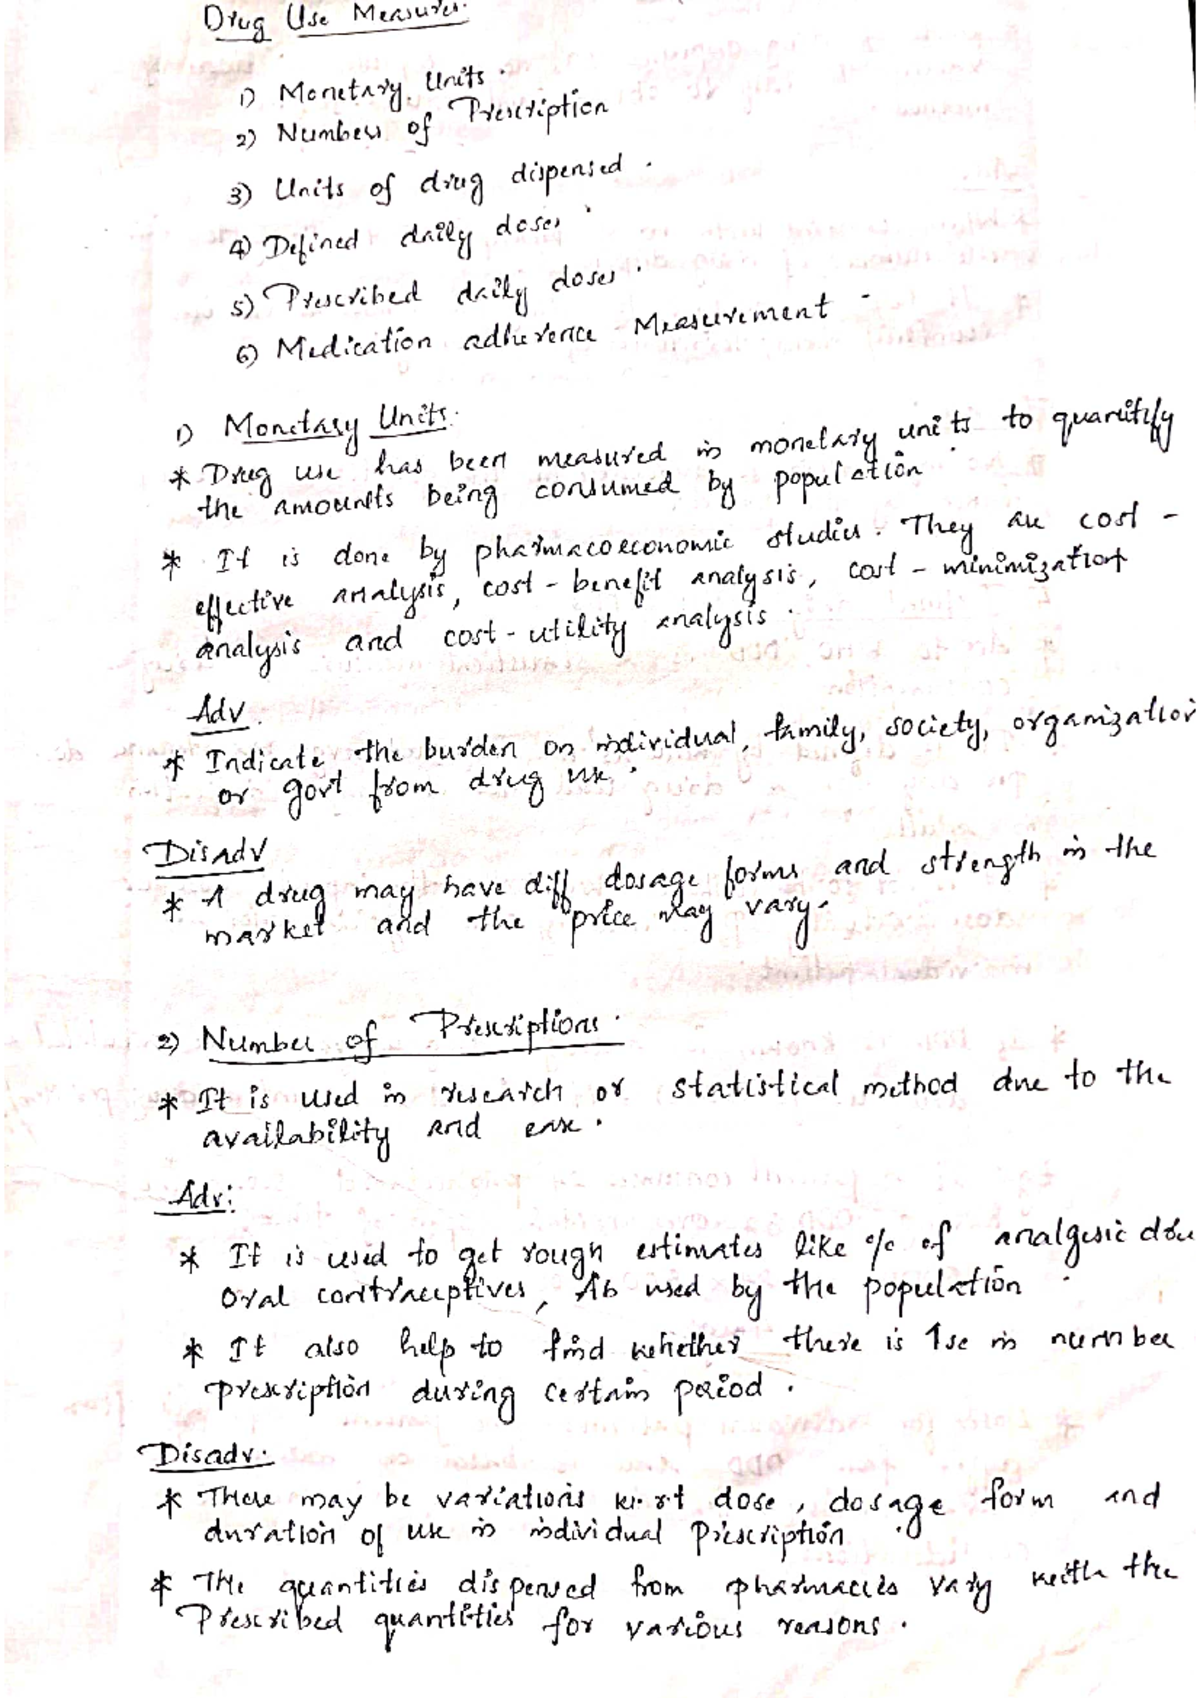 Drug Use Measures.
1) Monetary Units.
2) Numbers of Prescription
3) Units of drug dispensed.
4) Defined daily doses.
5) Prescribed daily doses.
6) Medication adherence Measurement -
1) Monetary Units.
* Drug use has been measured in monetary units to quantify
the amounts being consumed by population.
* It is done by pharmacoeconomic studies. They are cost-
effective analysis, cost-benefit analysis, cost-minimization
analysis and cost-utility analysis.
Adv.
* Indicate the burden on individual, family, society, organization
or govt from drug use.
Disadv
* A drug may have diff dosage forms and strength in the
market and the price may vary.
2) Number of Prescriptions.
* It is used in research or statistical method due to the
availability and ease.
Adv:
* It is used to get rough estimates like % of analgesic
oral contraceptives, Ab used by the population.
* It also help to find whether there is ↑se in number
prescription during certain period.
Disadv:
* There may be variations w.r.t dose, dosage form and
duration of use in individual prescription.
* The quantities dispensed from pharmacies vary with the
Prescribed quantities for various reasons.